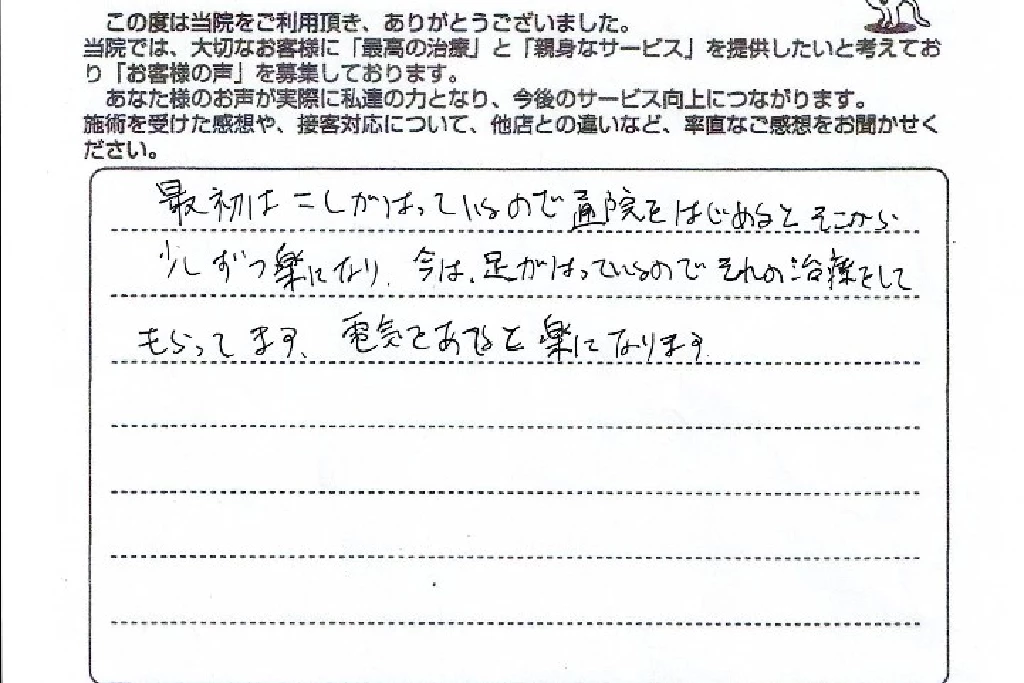 この度は当院をご利用頂き、ありがとうございました。
当院では、大切なお客様に「最高の治療」と「親身なサービス」を提供したいと考えてお
り「お客様の声」を募集しております。
あなた様のお声が実際に私達の力となり、今後のサービス向上につながります。
施術を受けた感想や、接客対応について、他店との違いなど、率直なご感想をお聞かせく
ださい。
最初はこしがはっているので通院をはじめるとそこから
少しずつ楽になり、今は、足がはっているのでそれの治療をして
もらってます、電気をあてると楽になります